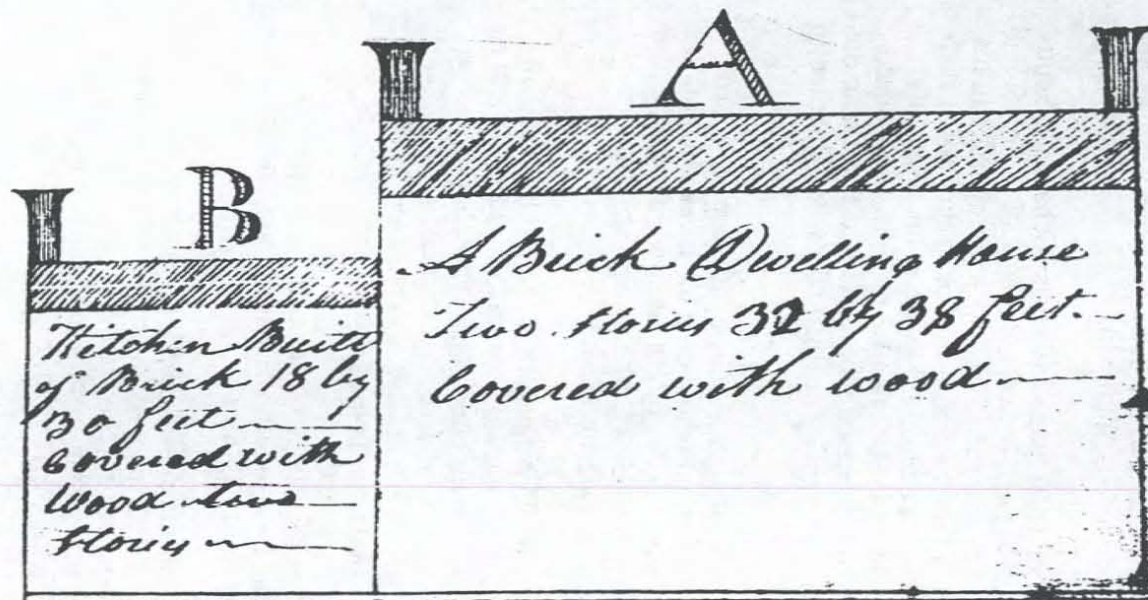 A
B
A Brick Dwelling House
Two Stories 32 by 38 feet
Covered with wood
Kitchin Built
of Brick 18 by
30 feet
Covered with
Wood two
Stories